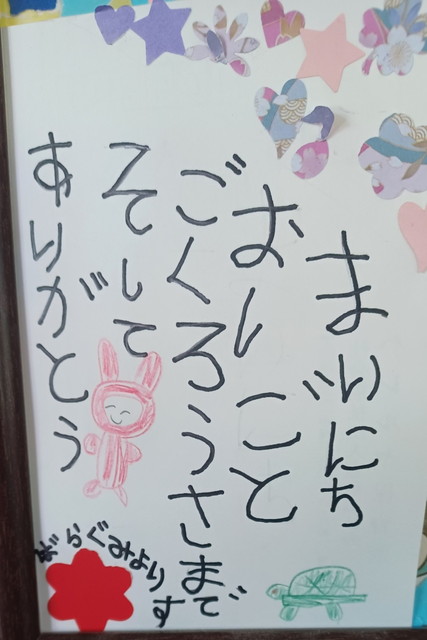 まいにち
おしごと
ごくろうさまで
す
そして
ありがとう
ばらぐみより